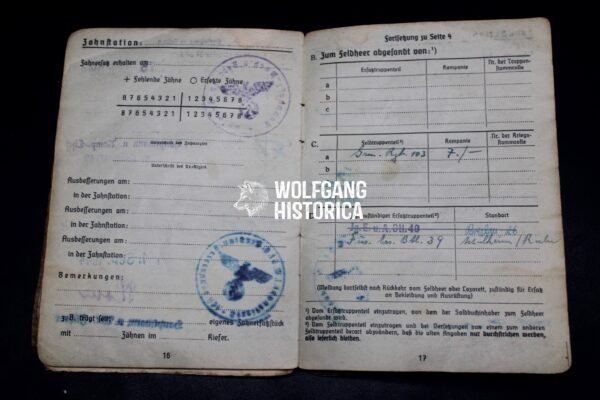 Zahnstation:
Zahnersatz erhalten am:
+ Fehlende Zähne O Ersetzte Zähne
87654321 | 12345678
87654321 | 12345678
Ausbesserungen am:
in der Zahnstation:
Ausbesserungen am:
in der Zahnstation:
Ausbesserungen am:
in der Zahnstation:
Bemerkungen:
z. B. trägt seit eigenes Zahnersatzstück
mit Zähnen im Kiefer.
16
WOLFGANG
HISTORICA
Fortsetzung zu Seite 4
B. Zum Feldheer abgesandt von:¹)
Ersatztruppenteil Kompanie Nr. der Truppen-
stammrolle
a
b
c
C. Feldtruppenteil²) Kompanie Nr. der Kriegs-
stammrolle
a Gren. Rgt. 103 7./–
b
c
zuständiger Ersatztruppenteil²) Standort
Füs. Ers. Btl. 39 Mülheim/Ruhr
(Meldung dortselbst nach Rückkehr vom Feldheer oder Lazarett, zuständig für Ersatz
an Bekleidung und Ausrüstung)
¹) Vom Ersatztruppenteil einzutragen, von dem der Soldbuchinhaber zum Feldheer
abgesandt wird.
²) Vom Feldtruppenteil einzutragen und bei Versetzungen von einem zum anderen
Feldtruppenteil derart abzuändern, daß die alten Angaben nur durchstrichen werden,
also leserlich bleiben.
17